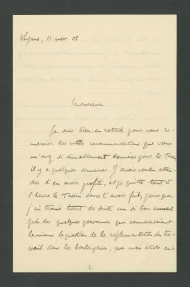 Lugano, 11 nov. 08
Monsieur
Je suis bien en retard pour vous re-
mercier des lettres recommandation que vous
m'avez si aimablement données pour le
il y a quelques semaines. J'avais voulu atten-
dre d'en avoir profité, et je partis tout à
l'heure le sans vous l'avoir fait, parce que
j'ai trouvé tout de suite un si bon accueil
près des quelques personnes qui connaissaient
le mieux la question de la réglementation du tra-
vail dans la boulangerie, que mon étude en